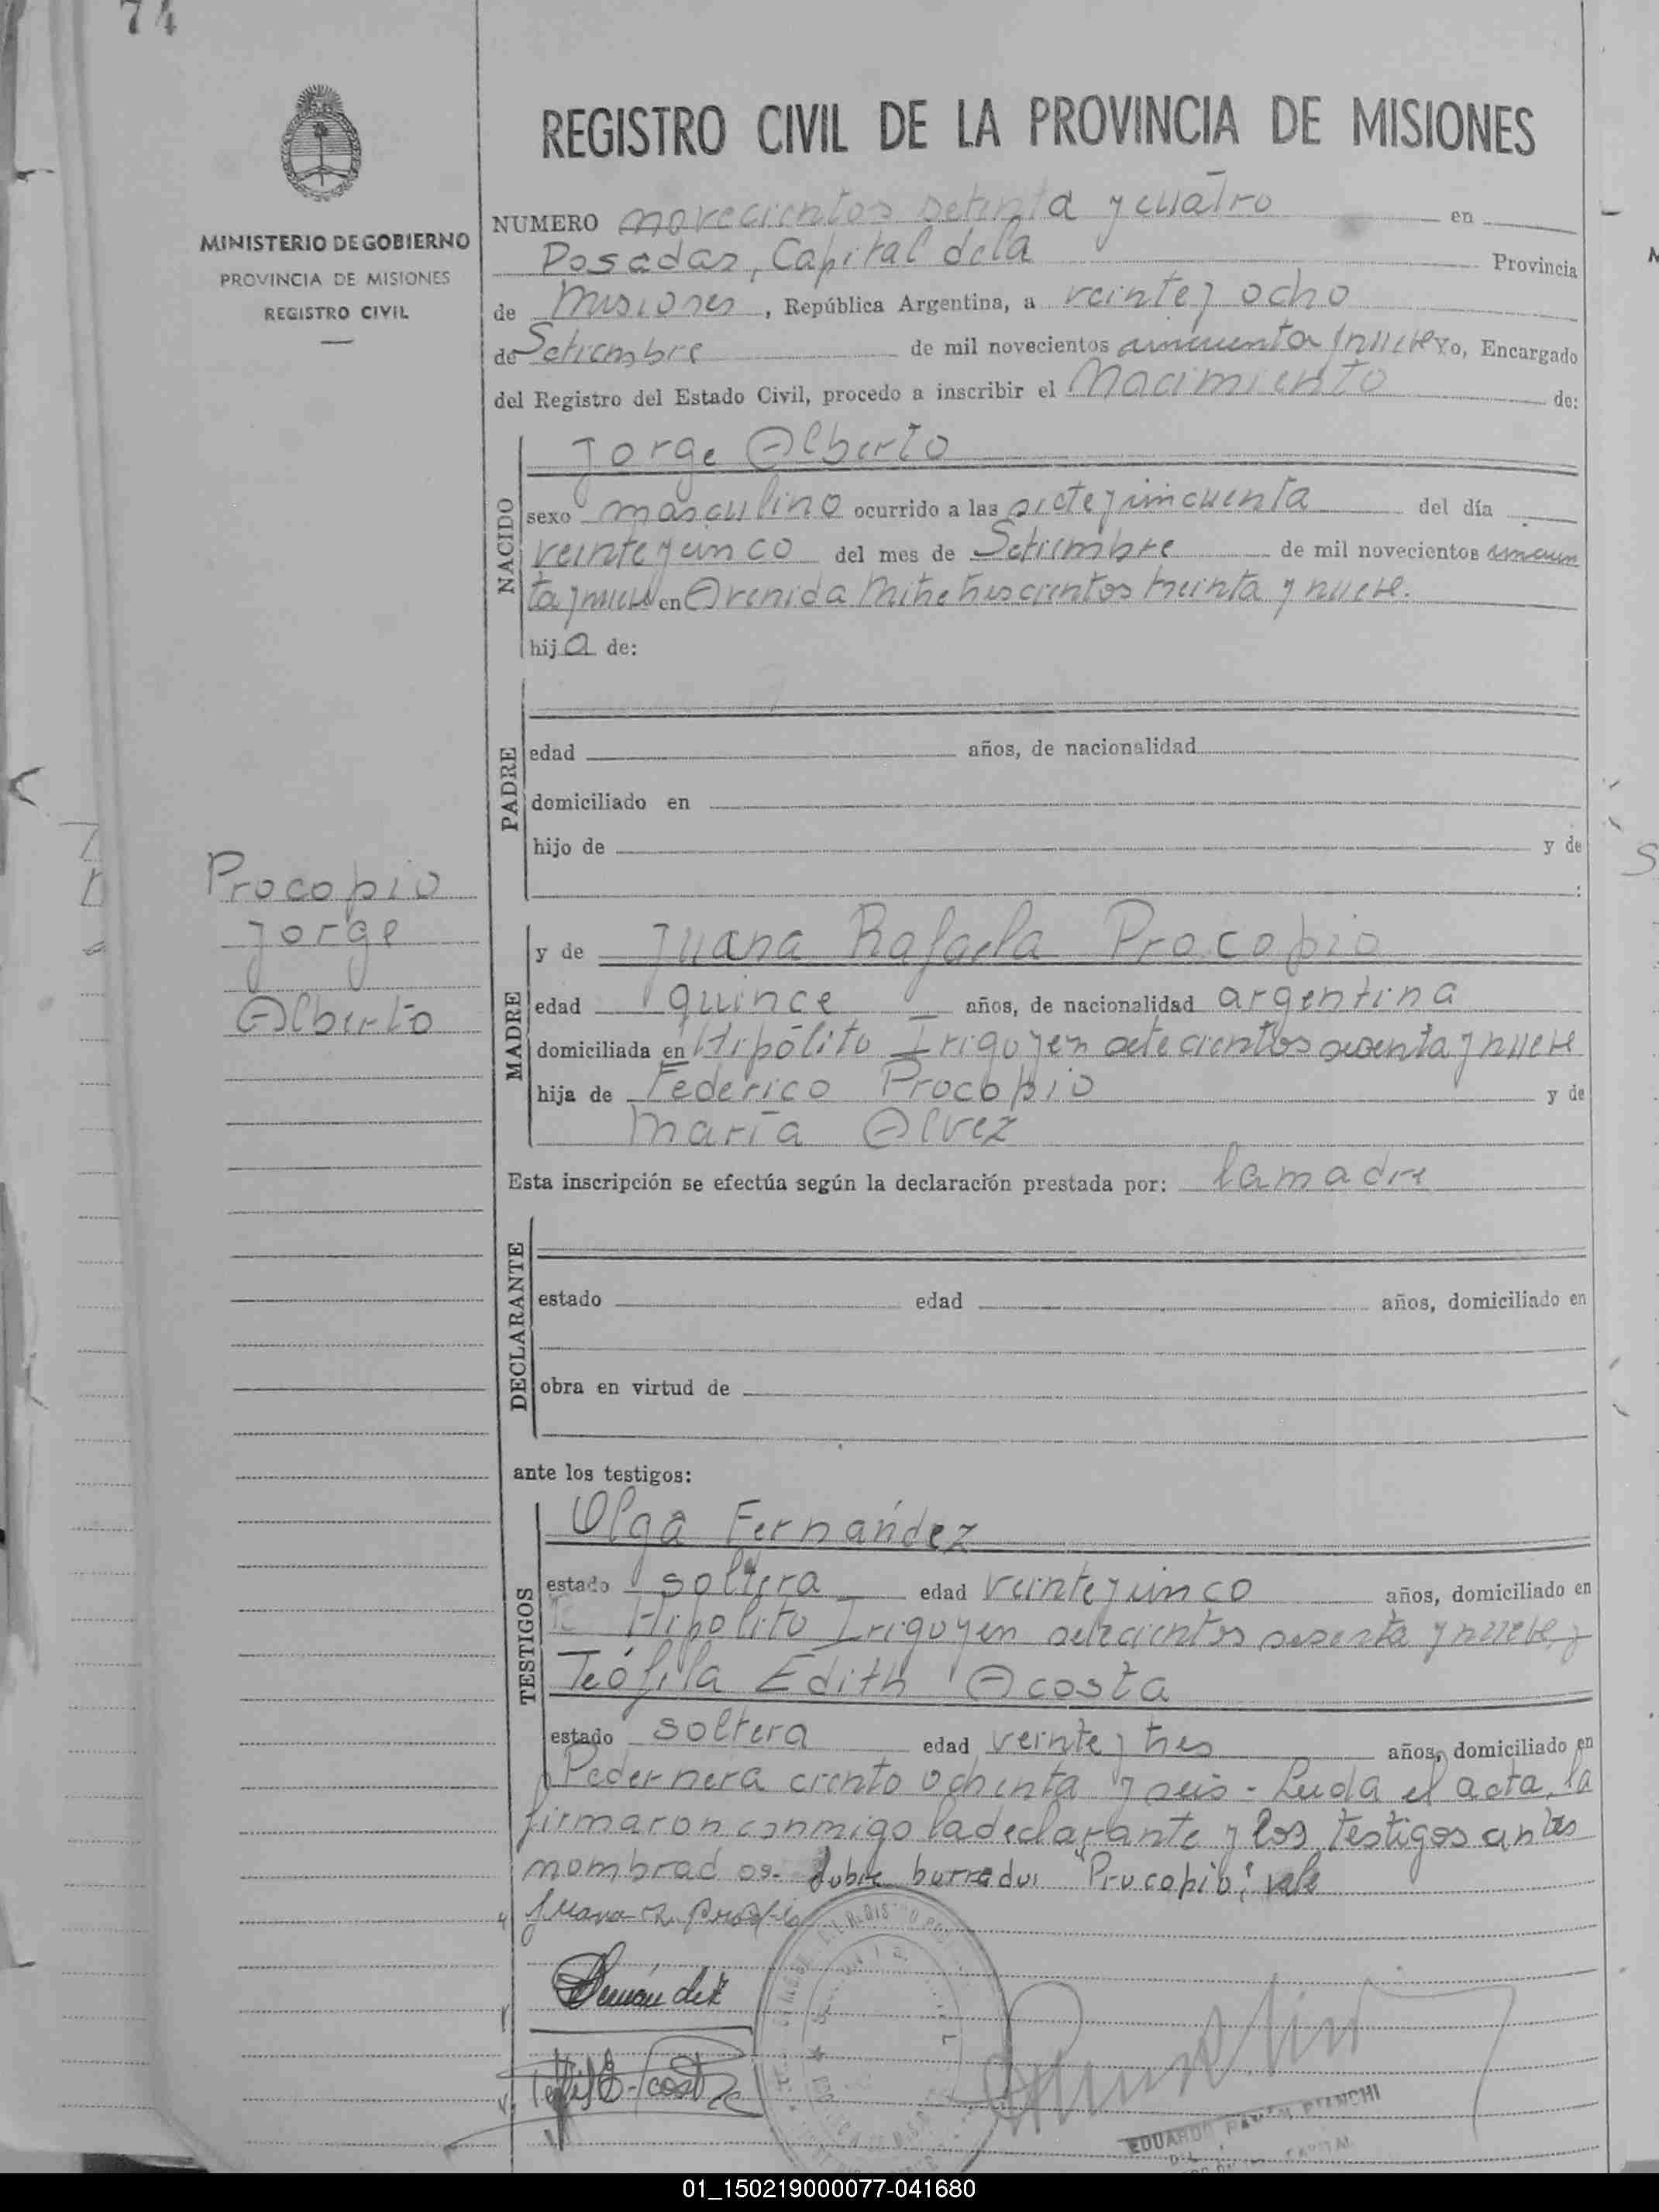 74
REGISTRO CIVIL DE LA PROVINCIA DE MISIONES
MINISTERIO DE GOBIERNO
PROVINCIA DE MISIONES
REGISTRO CIVIL
NUMERO novecientos setenta y cuatro en
Posadas, Capital de la Provincia
de Misiones, República Argentina, a veinte y ocho
de Setiembre de mil novecientos cincuenta y nueve yo, Encargado
del Registro del Estado Civil, procedo a inscribir el Nacimiento de:
NACIDO
Jorge Alberto
sexo masculino ocurrido a las siete y cincuenta del día
veinte y cinco del mes de Setiembre de mil novecientos cincuen
ta y nueve en Avenida Mitre trescientos treinta y nueve.
hijo de:
PADRE
edad años, de nacionalidad
domiciliado en
hijo de y de
:
Procopio
Jorge
Alberto
MADRE
y de Juana Rafaela Procopio
edad quince años, de nacionalidad argentina
domiciliada en Hipólito Irigoyen setecientos sesenta y nueve
hija de Federico Procopio y de
María Alvez
Esta inscripción se efectúa según la declaración prestada por: la madre
DECLARANTE
estado edad años, domiciliado en
obra en virtud de
ante los testigos:
TESTIGOS
Olga Fernández
estado soltera edad veinte y cinco años, domiciliado en
Hipolito Irigoyen setecientos sesenta y nueve y
Teófila Edith Acosta
estado soltera edad veinte y tres años, domiciliado en
Pedernera ciento ochenta y seis - Leida el acta, la
firmaron conmigo la declarante y los testigos antes
nombrados. Sobre borrado: "Procopio": vale
Juana R. Procopio
Fernández
EDUARDO RAMÓN BIANCHI
CAPITAL
01_150219000077-041680